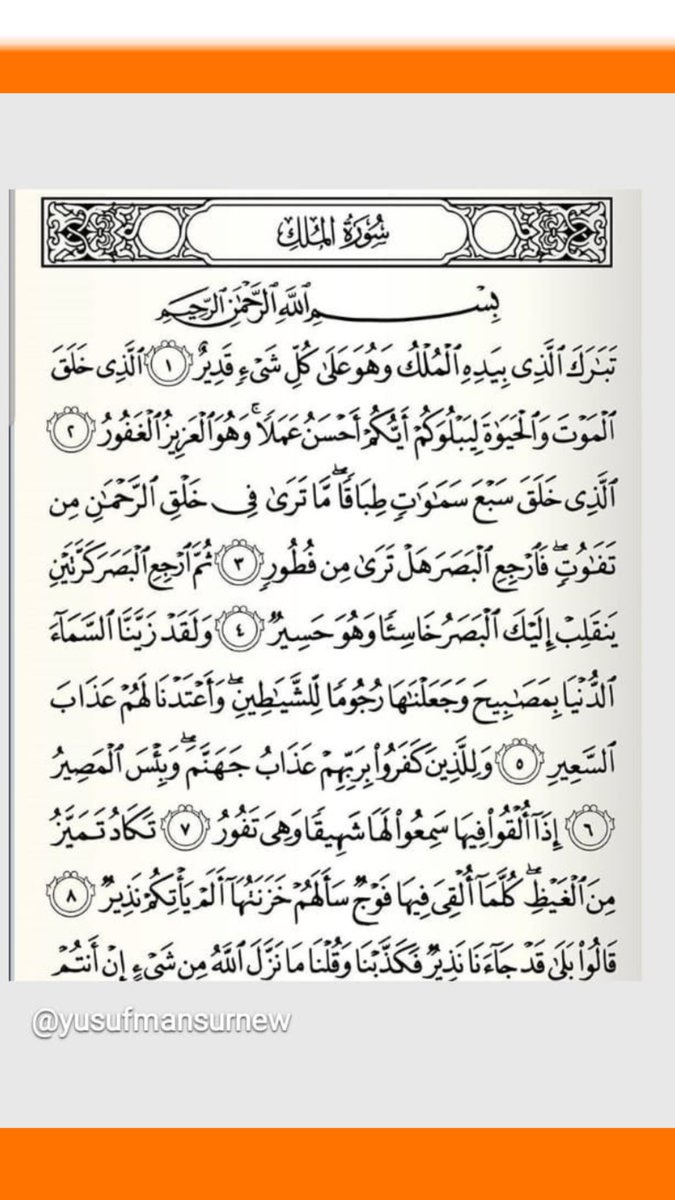 سُورَةُ المُلْكِ
بِسْمِ ٱللَّهِ ٱلرَّحْمَٰنِ ٱلرَّحِيمِ
تَبَٰرَكَ ٱلَّذِى بِيَدِهِ ٱلْمُلْكُ وَهُوَ عَلَىٰ كُلِّ شَىْءٍ قَدِيرٌ ١ ٱلَّذِى خَلَقَ
ٱلْمَوْتَ وَٱلْحَيَوٰةَ لِيَبْلُوَكُمْ أَيُّكُمْ أَحْسَنُ عَمَلًا ۚ وَهُوَ ٱلْعَزِيزُ ٱلْغَفُورُ ٢
ٱلَّذِى خَلَقَ سَبْعَ سَمَٰوَٰتٍ طِبَاقًا ۖ مَّا تَرَىٰ فِى خَلْقِ ٱلرَّحْمَٰنِ مِن
تَفَٰوُتٍ ۖ فَٱرْجِعِ ٱلْبَصَرَ هَلْ تَرَىٰ مِن فُطُورٍ ٣ ثُمَّ ٱرْجِعِ ٱلْبَصَرَ كَرَّتَيْنِ
يَنقَلِبْ إِلَيْكَ ٱلْبَصَرُ خَاسِئًا وَهُوَ حَسِيرٌ ٤ وَلَقَدْ زَيَّنَّا ٱلسَّمَآءَ
ٱلدُّنْيَا بِمَصَٰبِيحَ وَجَعَلْنَٰهَا رُجُومًا لِّلشَّيَٰطِينِ ۖ وَأَعْتَدْنَا لَهُمْ عَذَابَ
ٱلسَّعِيرِ ٥ وَلِلَّذِينَ كَفَرُوا۟ بِرَبِّهِمْ عَذَابُ جَهَنَّمَ ۖ وَبِئْسَ ٱلْمَصِيرُ
٦ إِذَآ أُلْقُوا۟ فِيهَا سَمِعُوا۟ لَهَا شَهِيقًا وَهِىَ تَفُورُ ٧ تَكَادُ تَمَيَّزُ
مِنَ ٱلْغَيْظِ ۖ كُلَّمَآ أُلْقِىَ فِيهَا فَوْجٌ سَأَلَهُمْ خَزَنَتُهَآ أَلَمْ يَأْتِكُمْ نَذِيرٌ ٨
قَالُوا۟ بَلَىٰ قَدْ جَآءَنَا نَذِيرٌ فَكَذَّبْنَا وَقُلْنَا مَا نَزَّلَ ٱللَّهُ مِن شَىْءٍ إِنْ أَنتُمْ
@yusufmansurnew